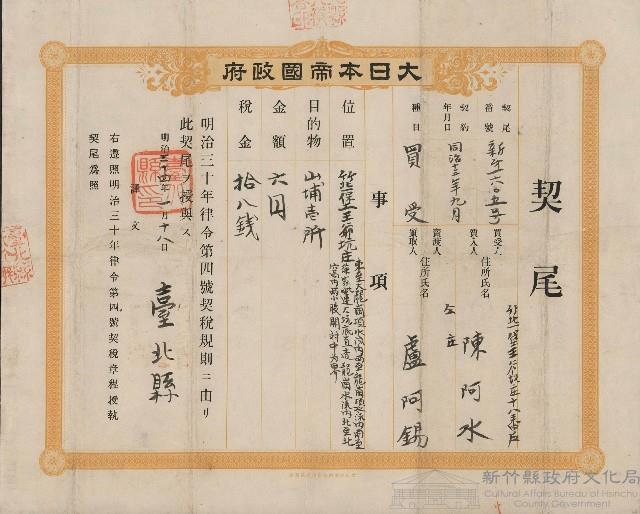 大日本帝國政府
契尾
契尾番號
新第一六〇五號
契約年月日
同治十三年九月
種目
買受
買受人
買入人
住所氏名
陳阿水
賣渡人
領取人
住所氏名
左立
盧阿錫
事項
位置
目的物
山埔壱所
金額
六円
稅金
拾八錢
明治三十年律令第四號契稅規則ニ由リ
此契尾ヲ授與ス
明治三十四年一月十八日
臺北縣
譯文
右遵照明治三十年律令第四號契稅章程授執
契尾爲照
新竹縣政府文化局
Cultural Affairs Bureau of Hsinchu
County Government